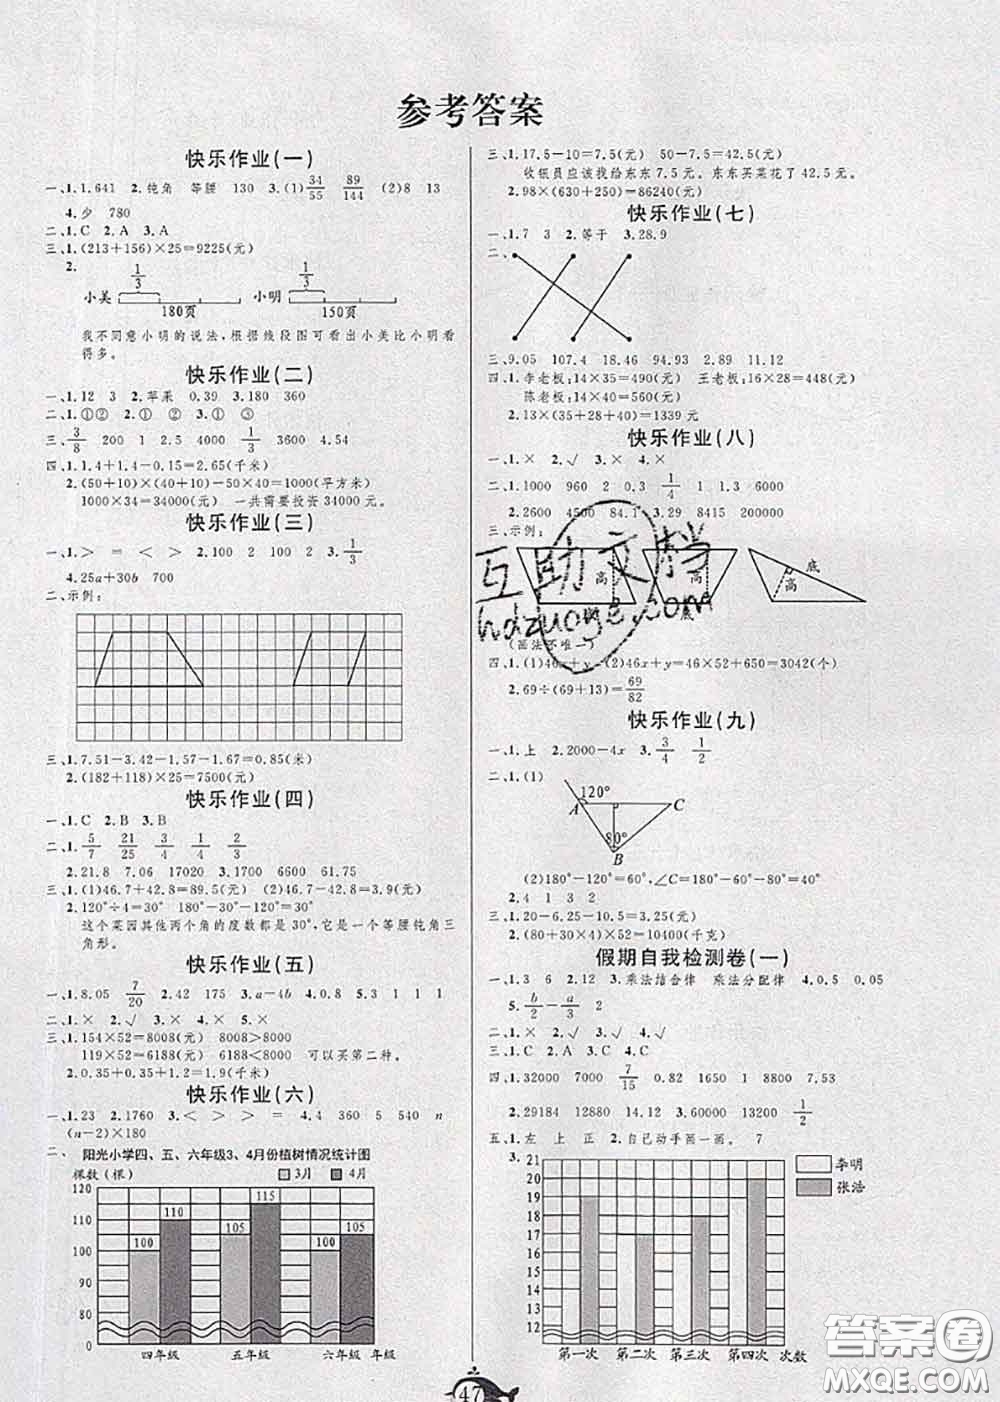 参考答案
快乐作业(一)
一、1.1.641 2.钝角 等腰 130 3.(1)34/55 89/144 (2)8 13
4.少 780
二、1.C 2.A 3.A
三、1.(213+156)×25=9225(元)
2.
1/3 1/3
小美 180页 小明 150页
我不同意小明的说法,根据线段图可看出小美比小明看
得多。
快乐作业(二)
一、1.12 3 2.苹果 0.39 3.180 360
二、1.①② 2.① ② 3.① ③
三、3/8 200 1 2.5 4000 1/3 3600 4.54
四、1.1.4+1.4-0.15=2.65(千米)
2.(50+10)×(40+10)-50×40=1000(平方米)
1000×34=34000(元) 一共需要投资34000元。
快乐作业(三)
一、1.> = < > 2.100 2 100 3.1/3
4.25a+30b 700
二、示例:
三、1.7.51-3.42-1.57-1.67=0.85(米)
2.(182+118)×25=7500(元)
快乐作业(四)
一、1.C 2.B 3.B
二、1.5/7 21/25 3/4 1/4 2/3
2.21.8 7.06 17020 3.1700 6600 61.75
三、1.(1)46.7+42.8=89.5(元) (2)46.7-42.8=3.9(元)
2.120°÷4=30° 180°-120°-30°=30°
这个菜园其他两个角的度数都是30°,它是一个等腰钝角三
角形。
快乐作业(五)
一、1.8.05 7/20 2.42 175 3.a-4b 4.8.5 5.3 1 1 1
二、1.× 2.√ 3.× 4.× 5.×
三、1.154×52=8008(元) 8008>8000
119×52=6188(元) 6188<8000 可以买第二种。
2.0.35+0.35+1.2=1.9(元)
快乐作业(六)
一、1.23 2.1760 3.< > > = 4.4 360 5 540 n
(n-2)×180
二、
阳光小学四、五、六年级3、4月份植树情况统计图
棵数(棵) 3月 4月
120
110
100
90
80
70
60
0
100 110 105 115 100 105
四年级 五年级 六年级 年级
三、1.17.5-10=7.5(元) 50-7.5=42.5(元)
收银员应该找给东东7.5元。东东买菜花了42.5元。
2.98×(630+250)=86240(元)
快乐作业(七)
一、1.7 3 2.等于 3.28.9
二、
三、9.05 107.4 18.46 94.93 2.89 11.12
四、1.李老板:14×35=490(元) 王老板:16×28=448(元)
陈老板:14×40=560(元)
2.13×(35+28+40)=1339元
快乐作业(八)
一、1.× 2.√ 3.× 4.×
二、1.1000 960 2 0.3 1/4 1 1.3 6000
2.2600 4500 84.1 3.29 8415 200000
三、示例:
高 高 底 高
底
(画法不唯一)
四、1.(1)46x+y (2)46x+y=46×52+650=3042(个)
2.69÷(69+13)=69/82
快乐作业(九)
一、1.上 2.2000-4x 3.3/4 1/2
二、1.(1)
120°
A C
80°
B
(2)180°-120°=60° ∠C=180°-80°-60°=40°
三、1.20-6.25-10.5=3.25(元)
2.(80+30)×50=10400(千克)
假期自我检测卷(一)
一、1.3 6 2.12 3.乘法结合律 乘法分配律 4.0.5 0.05
5.b/2-a/3 3 2
二、1.× 2.√ 3.√ 4.√
三、1.C 2.A 3.C 4.C
四、1.32000 7000 7/15 0.82 1650 1 8800 7.53
2.29184 12880 14.12 3.98000 60000 13200 1/2
五、1.左 上 正 2.自己动手画一画。 7
3.
21
20
19
18
17
16
15
14
13
12
李明
张浩
第一次 第二次 第三次 第四次 次数
47
互助文档
hdzuoye.com
答案圈